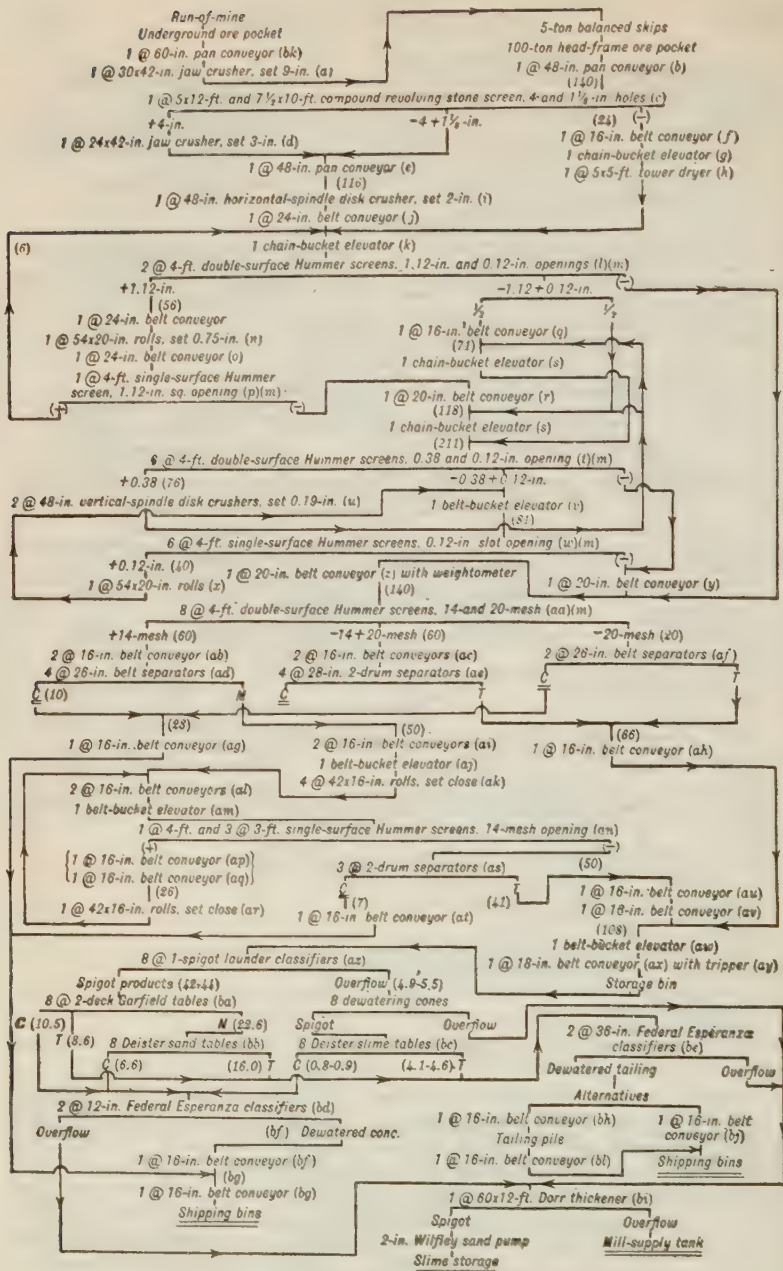 Run-of-mine
Underground ore pocket
1 @ 60-in. pan conveyor (bk)
1 @ 30x42-in. jaw crusher, set 9-in. (a)
5-ton balanced skips
100-ton head-frame ore pocket
1 @ 48-in. pan conveyor (b)
(140)
1 @ 5x12-ft. and 7 1/2x10-ft. compound revolving stone screen, 4-and 1 1/8-in. holes (c)
+4-in.
-4+1 1/8-in.
(24)
(-)
1 @ 24x42-in. jaw crusher, set 3-in. (d)
1 @ 16-in. belt conveyor (f)
1 chain-bucket elevator (g)
1 @ 5x5-ft. tower dryer (h)
1 @ 48-in. pan conveyor (e)
(116)
1 @ 48-in. horizontal-spindle disk crusher, set 2-in. (i)
1 @ 24-in. belt conveyor (j)
(6)
1 chain-bucket elevator (k)
2 @ 4-ft. double-surface Hummer screens, 1.12-in. and 0.12-in. openings (l)(m)
+1.12-in.
-1.12+0.12-in.
(-)
(56)
1/2
1/2
1 @ 24-in. belt conveyor
1 @ 54x20-in. rolls, set 0.75-in. (n)
1 @ 24-in. belt conveyor (o)
1 @ 4-ft. single-surface Hummer
screen, 1.12-in. sq. opening (p)(m)
(+)
(-)
1 @ 16-in. belt conveyor (q)
(71)
1 chain-bucket elevator (s)
1 @ 20-in. belt conveyor (r)
(118)
1 chain-bucket elevator (s)
(211)
6 @ 4-ft. double-surface Hummer screens, 0.38 and 0.12-in. opening (t)(m)
+0.38 (76)
-0.38+0.12-in.
(-)
2 @ 48-in. vertical-spindle disk crushers, set 0.19-in. (u)
1 belt-bucket elevator (v)
(81)
6 @ 4-ft. single-surface Hummer screens, 0.12-in slot opening (w)(m)
+0.12-in. (40)
(-)
1 @ 54x20-in. rolls (x)
1 @ 20-in. belt conveyor (z) with weightometer
(140)
1 @ 20-in. belt conveyor (y)
8 @ 4-ft. double-surface Hummer screens, 14-and 20-mesh (aa)(m)
+14-mesh (60)
-14+20-mesh (60)
-20-mesh (20)
2 @ 16-in. belt conveyor (ab)
2 @ 16-in. belt conveyors (ac)
2 @ 26-in. belt separators (af)
4 @ 26-in. belt separators (ad)
4 @ 28-in. 2-drum separators (ae)
C (10)
M
C
T
C
T
(23)
(50)
(66)
1 @ 16-in. belt conveyor (ag)
2 @ 16-in belt conveyors (ai)
1 @ 16-in. belt conveyor (ah)
1 belt-bucket elevator (aj)
4 @ 42x16-in. rolls, set close (ak)
2 @ 16-in. belt conveyors (al)
1 belt-bucket elevator (am)
1 @ 4-ft. and 3 @ 3-ft. single-surface Hummer screens. 14-mesh opening (an)
(+)
(-)
1 @ 16-in. belt conveyor (ap)
1 @ 16-in. belt conveyor (aq)
(26)
1 @ 42x16-in. rolls, set close (ar)
3 @ 2-drum separators (as)
(50)
C
T
(7)
(41)
1 @ 16-in belt conveyor (at)
1 @ 16-in. belt conveyor (au)
1 @ 16-in. belt conveyor (av)
(108)
1 belt-bucket elevator (aw)
1 @ 18-in. belt conveyor (ax) with tripper (ay)
Storage bin
8 @ 1-spigot launder classifiers (az)
Spigot products (42-44)
Overflow (4.9-5.5)
8 @ 2-deck Garfield tables (ba)
8 dewatering cones
C (10.5)
M (22.6)
T (8.6)
Spigot
Overflow
8 Deister sand tables (bb)
8 Deister slime tables (bc)
C (6.6)
(16.0) T
C (0.8-0.9)
(4.1-4.6) T
2 @ 36-in. Federal Esperanza
classifiers (be)
Dewatered tailing
Overflow
Alternatives
2 @ 12-in. Federal Esperanza classifiers (bd)
Overflow
(bf) Dewatered conc.
1 @ 16-in. belt conveyor (bh)
Tailing pile
1 @ 16-in. belt conveyor (bl)
1 @ 16-in. belt
conveyor (bj)
Shipping bins
1 @ 16-in. belt conveyor (bf)
(bg)
1 @ 16-in. belt conveyor (bg)
Shipping bins
1 @ 60x12-ft. Dorr thickener (bi)
Spigot
Overflow
2-in. Wilfley sand pump
Mill-supply tank
Slime storage